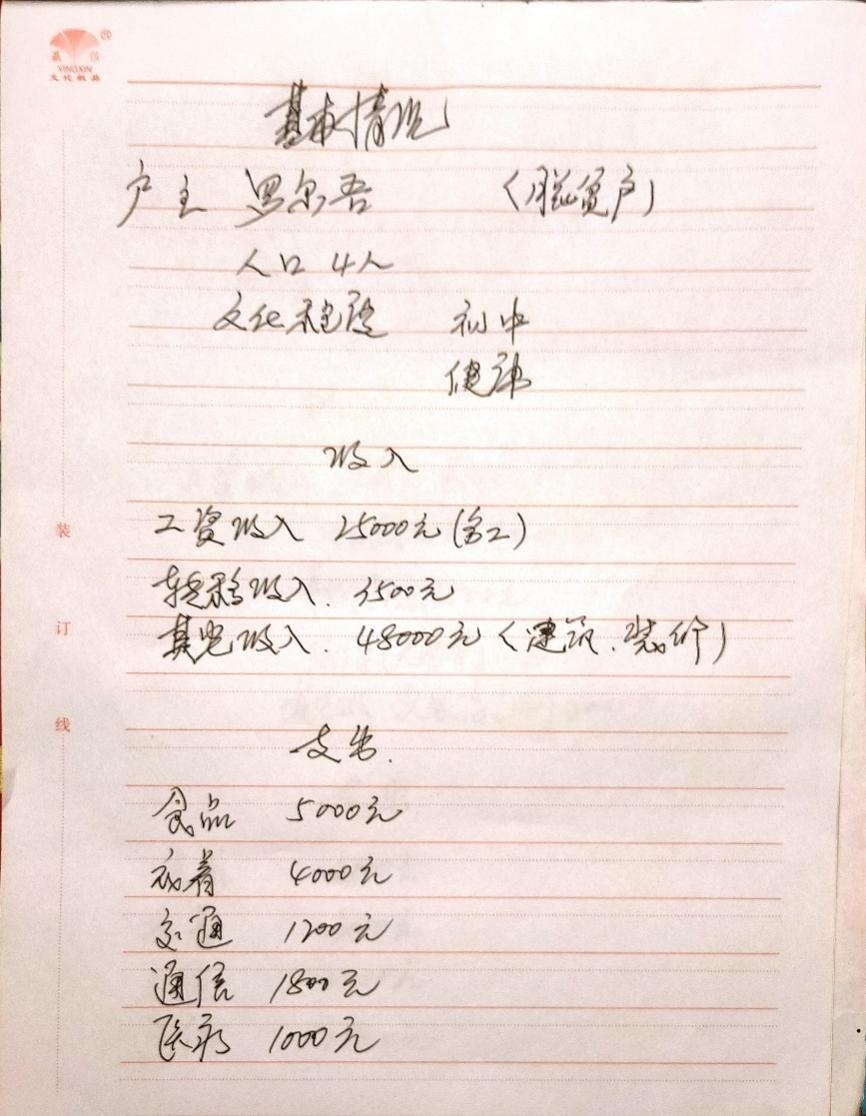 赢信
YINGXIN
文化纸品
基本情况
户主 罗尔吾 （脱贫户）
人口 4人
文化程度 初中
健康
收入
工资收入 25000元（务工）
转移收入. 3500元
其它收入. 48000元（建筑.装修）
支出.
食品 5000元
衣着 4000元
交通 1200元
通信 1800元
医疗 1000元
装
订
线